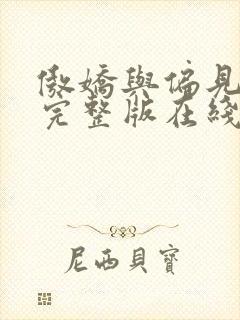 傲嬌與偏見
完整版在綫
尼西貝寶